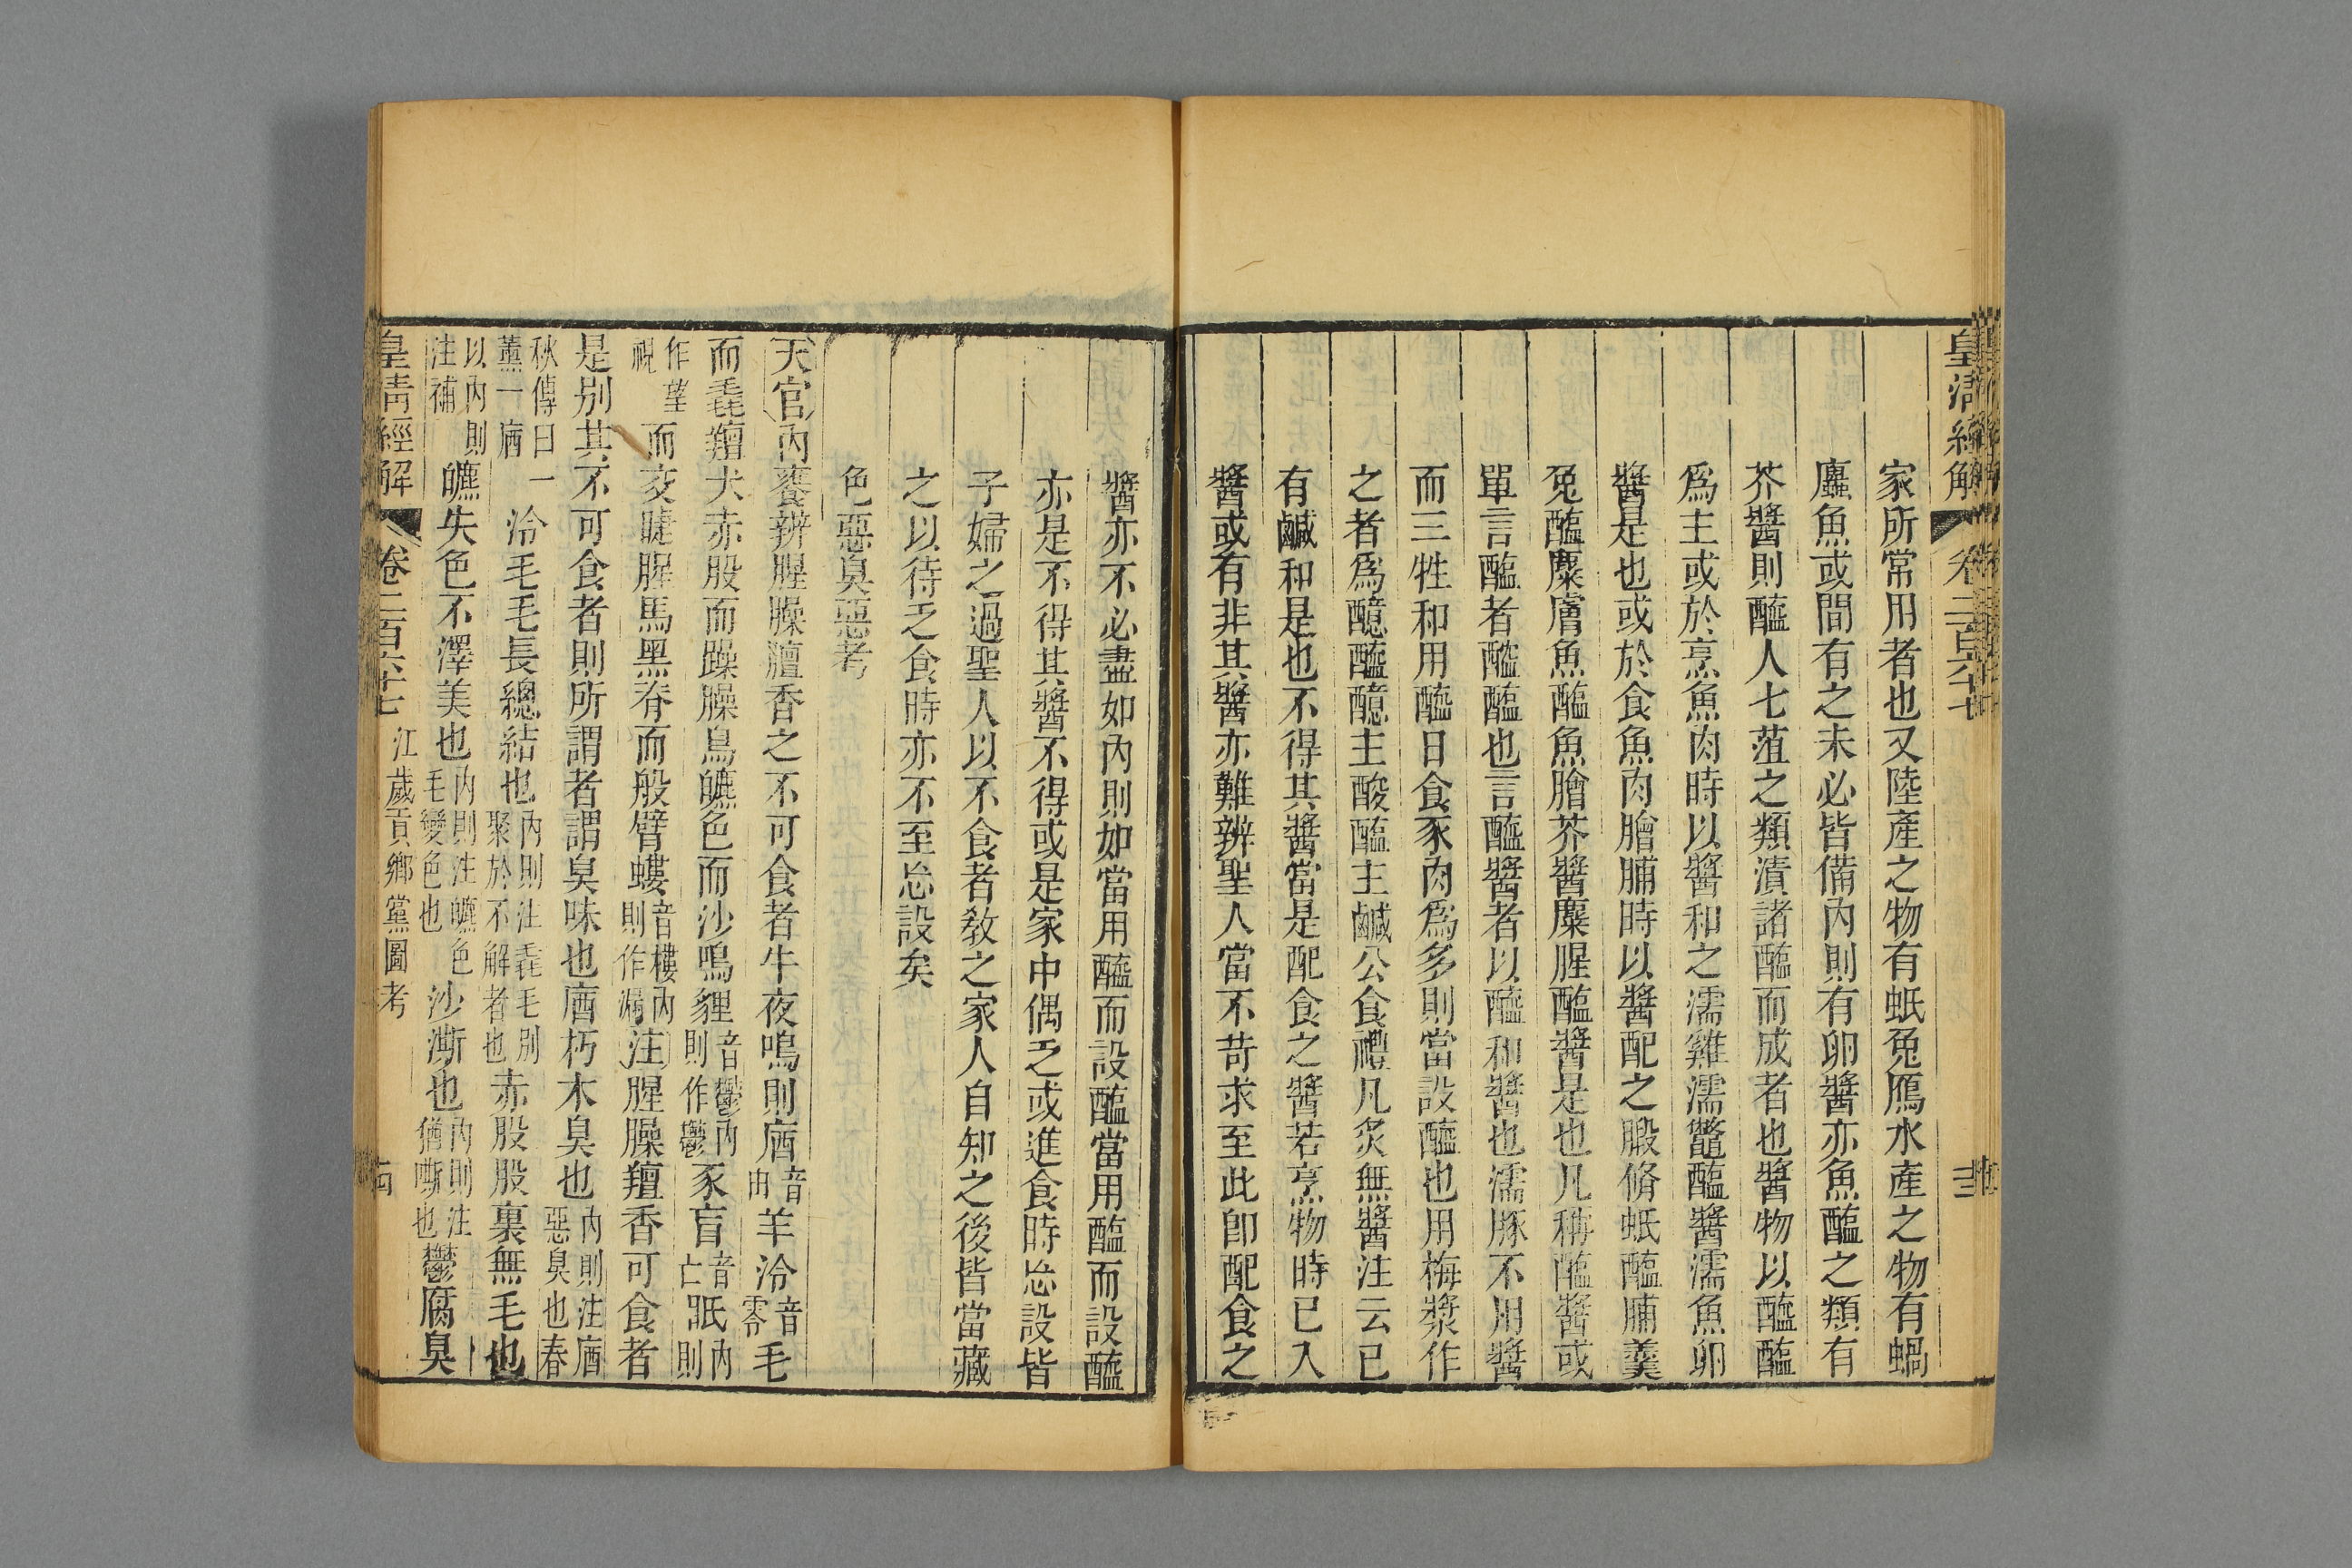 皇清經解　卷二百六十七　　十三
家所常用者也又陸產之物有蚳兔鴈水產之物有蝸
蠯魚或間有之未必皆備內則有卵醬亦魚醢之類有
芥醬則醯人七菹之類漬諸醯而成者也醬物以醯醢
爲主或於烹魚肉時以醬和之濡雞濡鼈醢醬濡魚卵
醬是也或於食魚肉膾脯時以醬配之腶脩蚳醢脯羹
兔醢麋膚魚醢魚膾芥醬麋腥醢醬是也凡稱醢醬或
單言醢者醓醢也言醯醬者以醯和醬也濡豚不用醬
而三牲和用醯日食豕肉爲多則當設醯也用梅漿作
之者爲醷醯醷主酸醢主鹹公食禮凡炙無醬注云已
有鹹和是也不得其醬當是配食之醬若烹物時已入
醬或有非其醬亦難辨聖人當不苛求至此卽配食之
醬亦不必盡如內則如當用醯而設醢當用醢而設醯
亦是不得其醬不得或是家中偶乏或進食時忘設皆
子婦之過聖人以不食者敎之家人自知之後皆當藏
之以待乏食時亦不至忘設矣
色惡臭惡考
天官內饔辨腥臊羶香之不可食者牛夜鳴則庮音由羊泠音零毛
而毳羶犬赤股而躁臊鳥皫色而沙鳴貍音鬱內則作鬱豕盲音亡眡內則
作望視而交睫腥馬黑脊而般臂螻音樓內則作漏注腥臊羶香可食者
是別其不可食者則所謂者謂臭味也庮朽木臭也內則注庮惡臭也春
秋傳曰一薰一庮泠毛毛長總結也內則注毳毛別聚於不解者也赤股股裏無毛也
以內則注補皫失色不澤美也內則注皫色毛變色也沙澌也內則注猶嘶也鬱腐臭
皇清經解　卷二百六十七　江歲貢鄉黨圖考　　十四